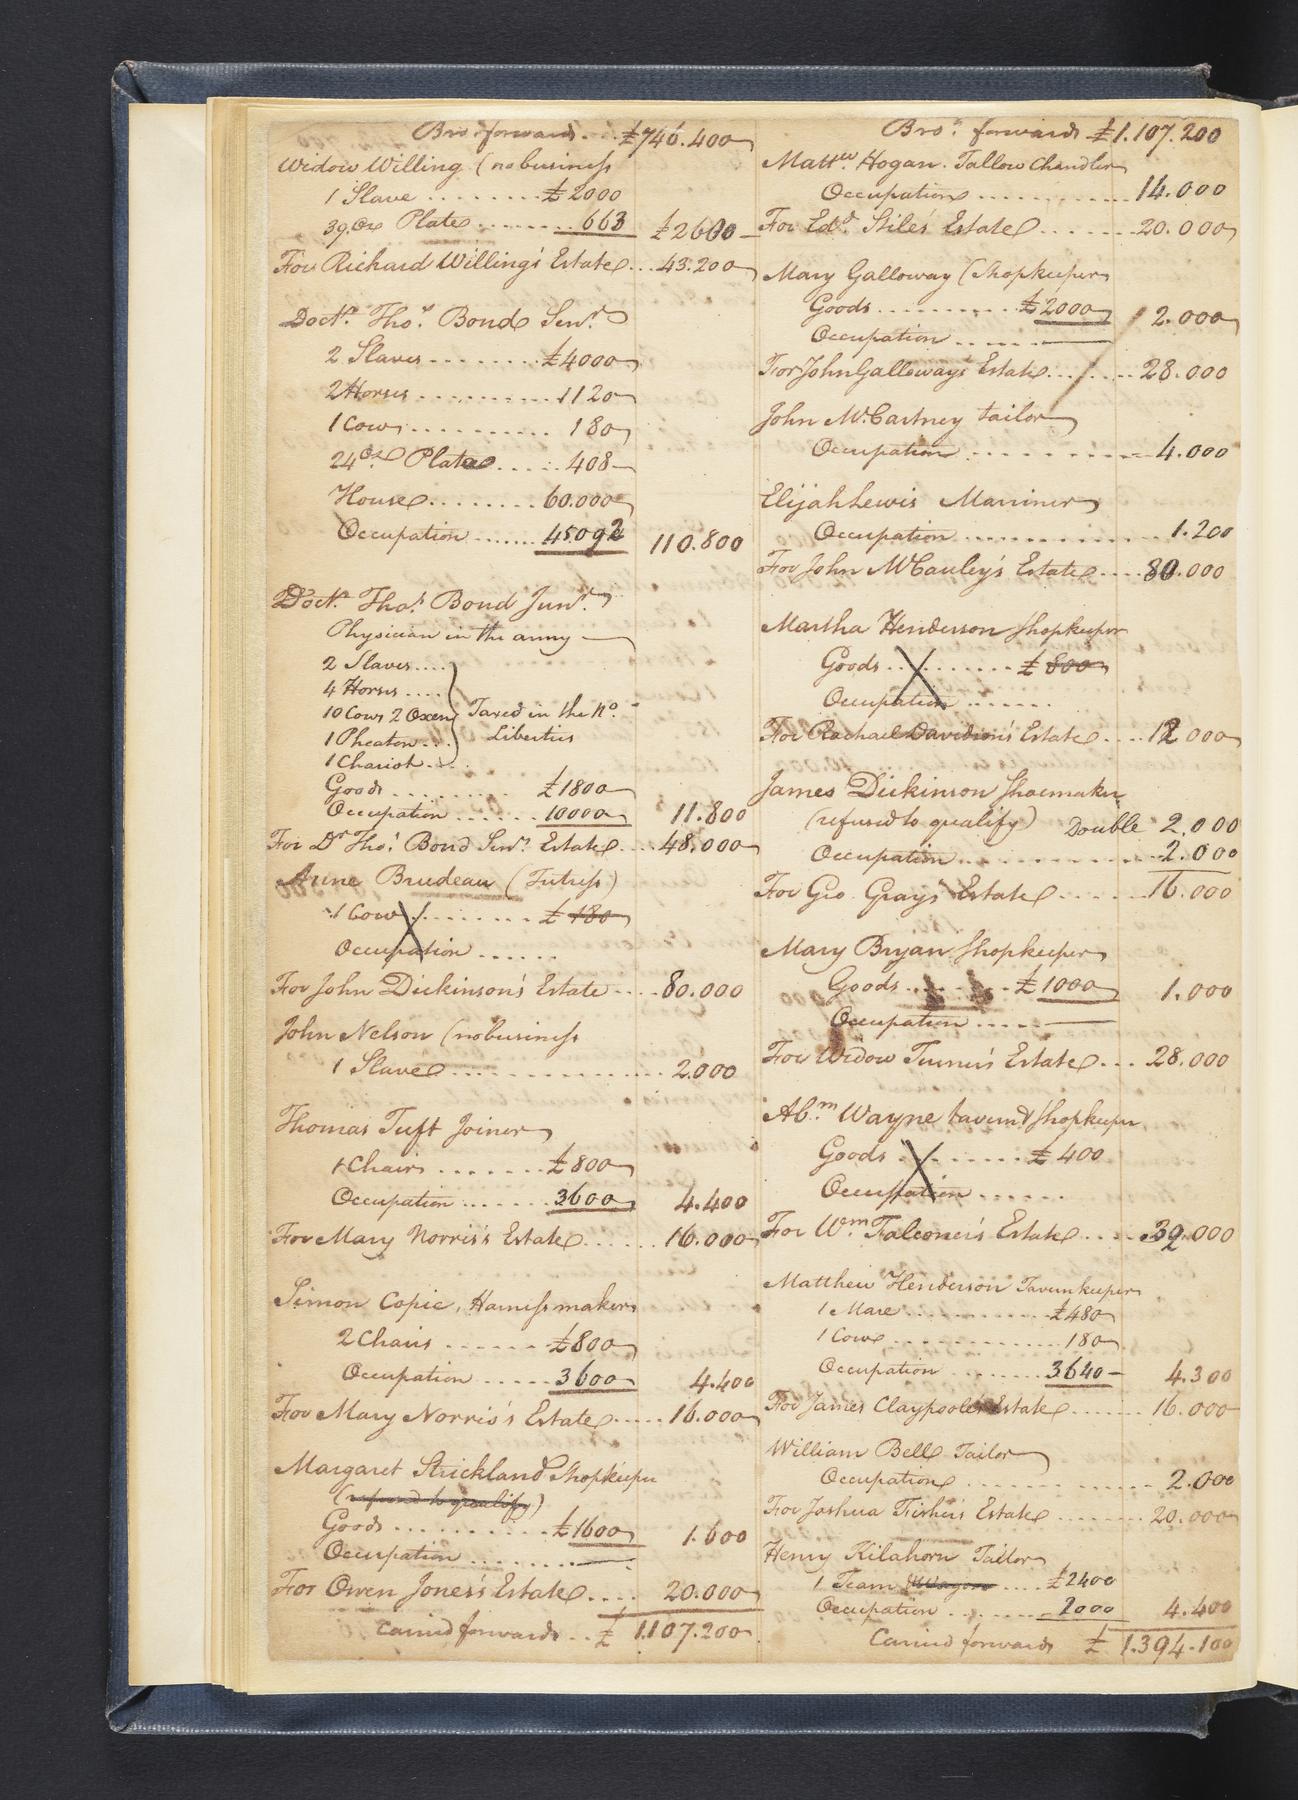 Bro.t forwards... £746.400
Widow Willing (no business
1 Slave ........ £2000
39.Oz Plate ........ 663 £2600
For Richard Willing's Estate... 43.200
Doctr. Thos. Bond Senr.
2 Slaves ........ £4000
2 Horses .......... 1120
1 Cow ........... 180
24 Oz. Plate ..... 408
House ........ 60.000
Occupation ...... 45092 110.800
Doctr. Thos. Bond Junr.
Physician in the army
2 Slaves....
4 Horses ....
10 Cows 2 Oxen Taxed in the No.
1 Pheaton ... Liberties
1 Chariot ....
Goods .......... £1800
Occupation ...... 10000 11.800
For Dr. Thos. Bond Senr. Estate ... 48.000
Anne Brudeau (Tutress)
1 Cow ........ £ 180
Occupation ......
For John Dickinson's Estate .... 80.000
John Nelson (no business
1 Slave ................ 2.000
Thomas Tuft Joiner
1 Chair ....... £800
Occupation ...... 3600 4.400
For Mary Norris's Estate ...... 16.000
Simon Copie, Harness maker
2 Chairs ...... £800
Occupation ..... 3600 4.400
For Mary Norris's Estate ..... 16.000
Margaret Strickland Shopkeeper
(refused to qualify)
Goods ........... £1600 1.600
Occupation ........
For Owen Jones's Estate .... 20.000
Carried forwards ... £ 1.107.200
Bro.t forwards £1.107.200
Mattw. Hogan. Tallow Chandler
Occupation ............ 14.000
For Edd. Stiles' Estate ....... 20.000
Mary Galloway (Shopkeeper
Goods .......... £2000 2.000
Occupation ......
For John Galloway's Estate ....... 28.000
John McCartney tailor
Occupation ............ 4.000
Elijah Lewis Marriner
Occupation .............. 1.200
For John McCauley's Estate .... 80.000
Martha Henderson Shopkeeper
Goods ......... £ 800
Occupation .......
For Rachael Davidson's Estate .... 12.000
James Dickinson Shoemaker
(refused to qualify) Double 2.000
Occupation ............. 2.000
For Geo. Grays' Estate ...... 16.000
Mary Bryan Shopkeeper
Goods ......... £1000 1.000
Occupation .....
For Widow Turner's Estate .... 28.000
Abm. Wayne tavern & Shopkeeper
Goods ......... £ 400
Occupation ......
For Wm. Falconer's Estate ..... 32.000
Matthew Henderson Tavernkeeper
1 Mare ............. £480
1 Cow ............. 180
Occupation ........ 3640 4.300
For James Claypoole's Estate ....... 16.000
William Bell Tailor
Occupation ............. 2.000
For Joshua Fisher's Estate ........ 20.000
Henry Kilahorn Tailor
1 Team Waggon .... £2400
Occupation ........ 2000 4.400
Carried forwards £ 1.394.100